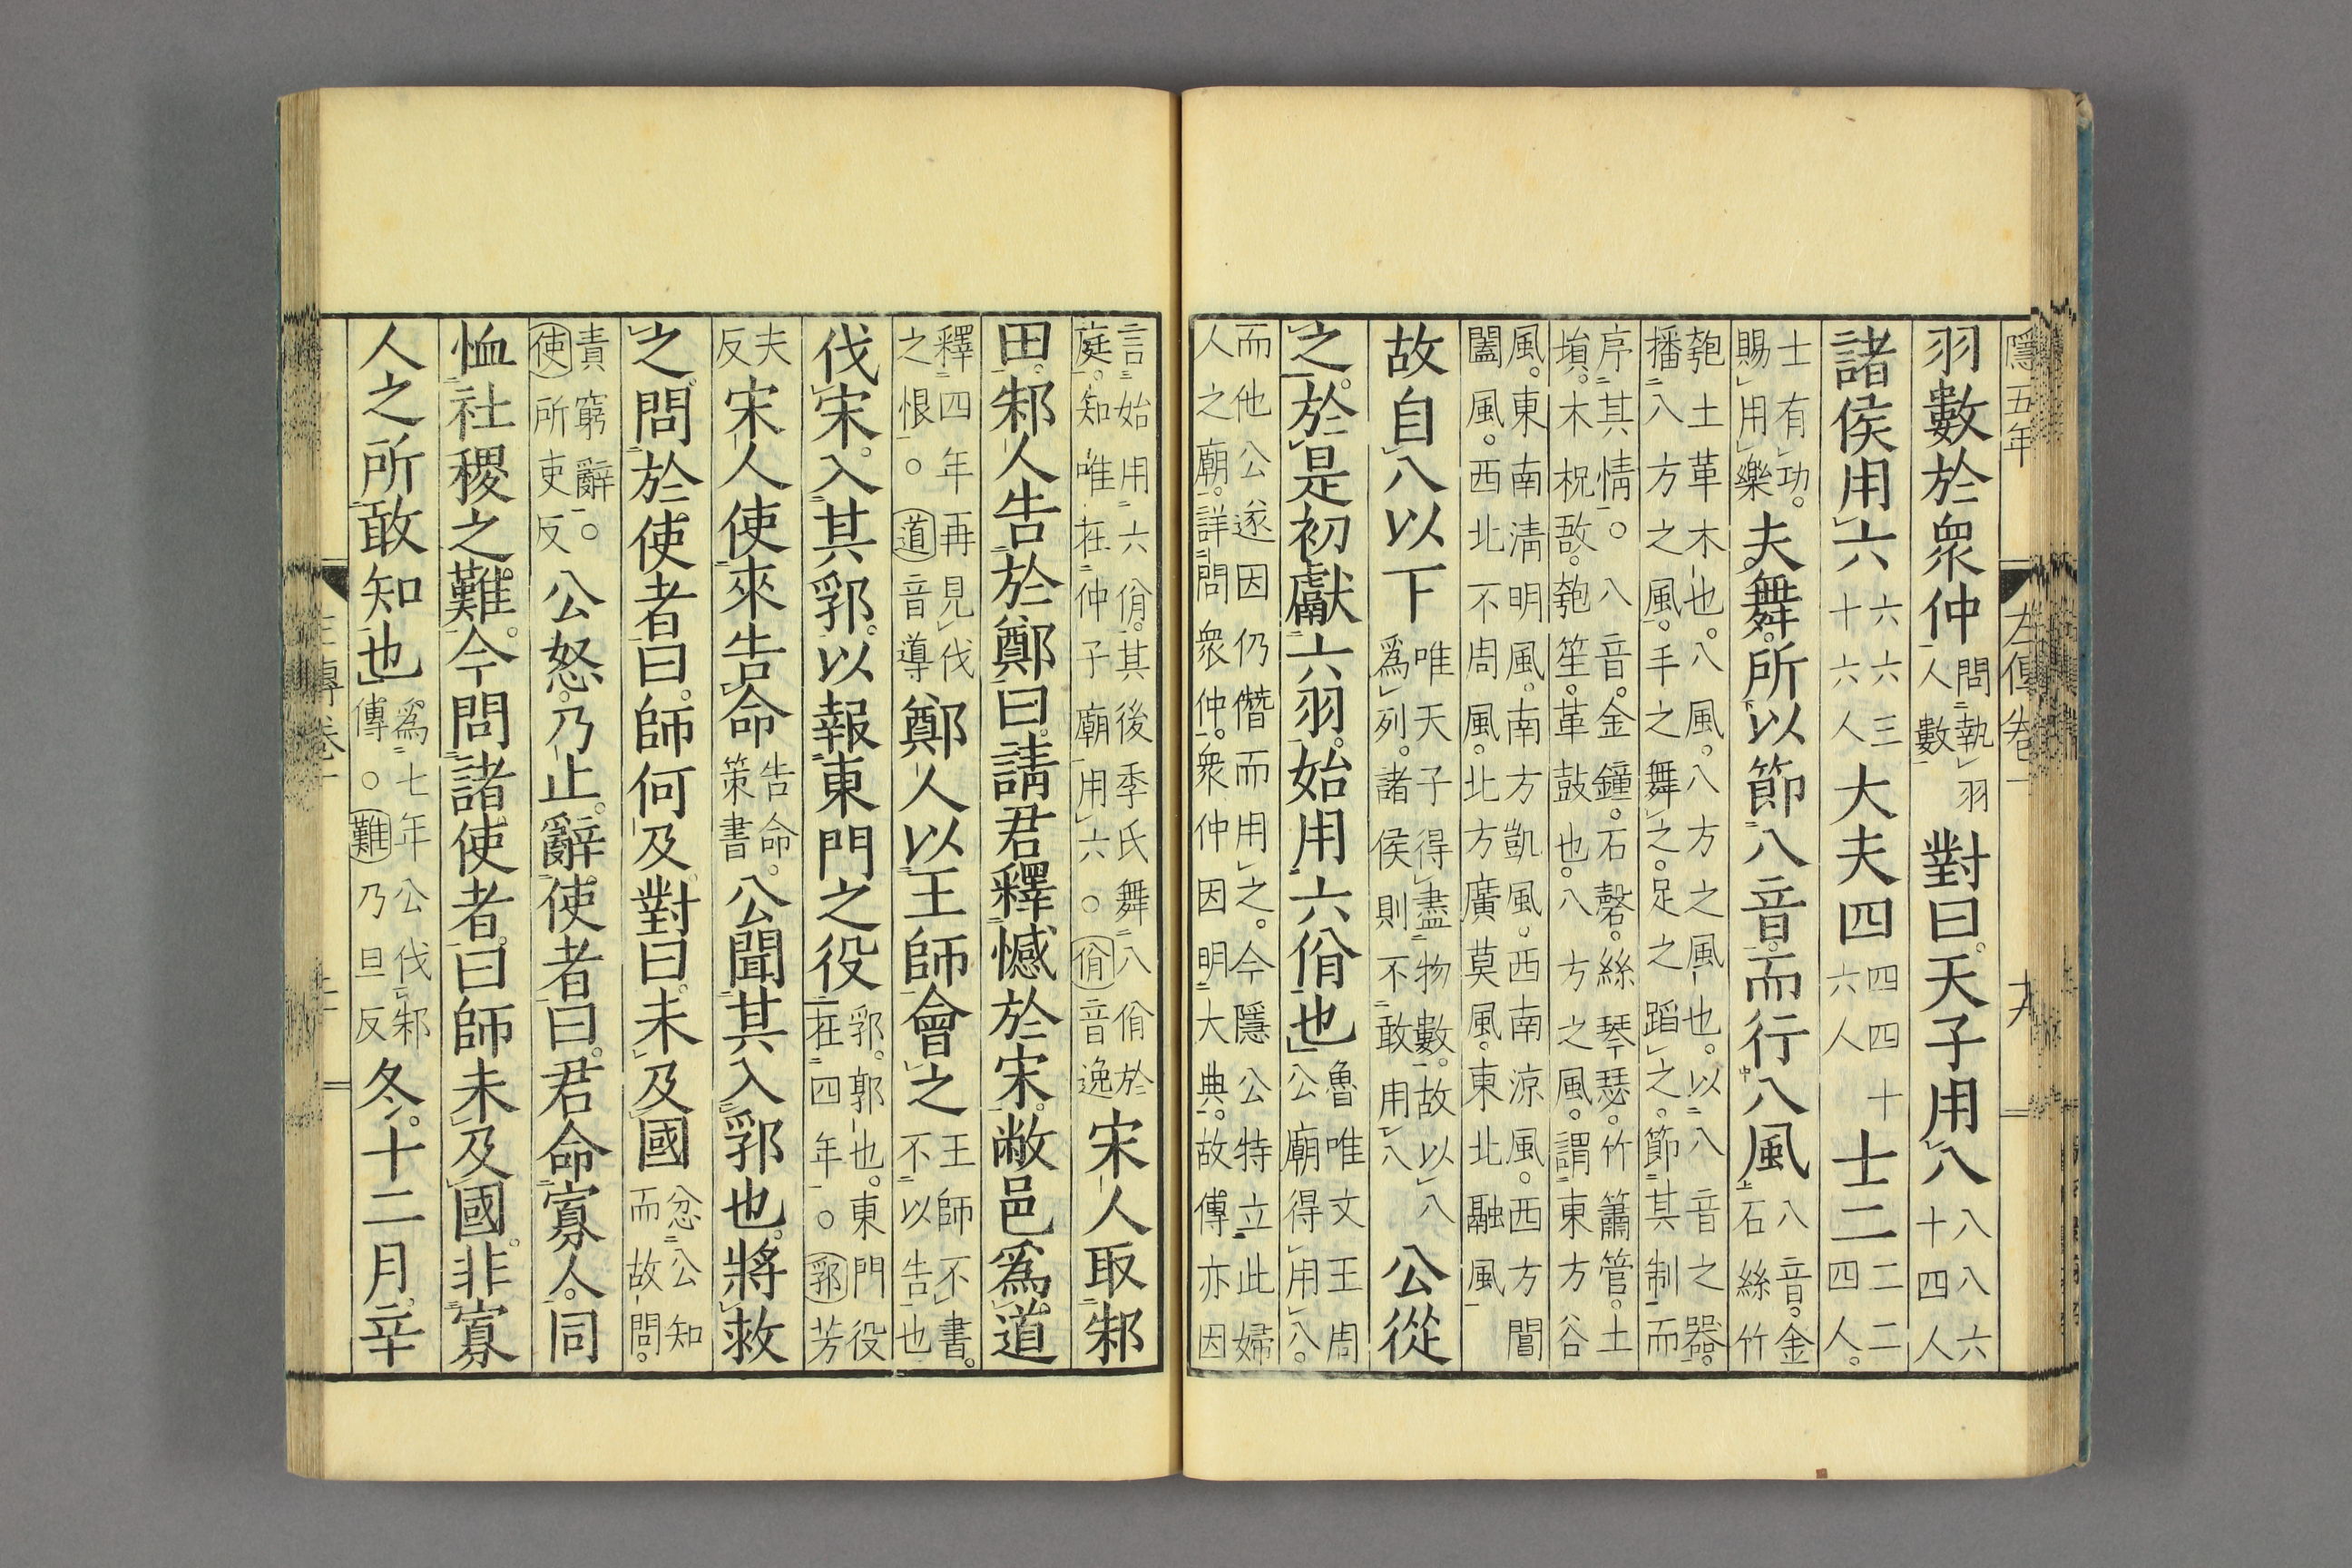 隱五年
左傳卷一
十九
羽數於眾仲問執羽人數對曰。天子用八八八六十四人
諸侯用六六六三十六人大夫四四四十六人士二二二四人。
士有功。賜用樂夫舞。所以節八音。而行八風八音。金石絲竹
匏土革木也。八風。八方之風也。以八音之器。播八方之風。手之舞之。足之蹈之。節其制而
序其情。○八音。金鐘。石磬。絲琴瑟。竹簫管。土塤。木柷敔。匏笙。革鼓也。八方之風。謂東方谷
風。東南清明風。南方凱風。西南涼風。西方閶闔風。西北不周風。北方廣莫風。東北融風
故自八以下唯天子得盡物數。故以八爲列。諸侯則不敢用八公從
之。於是初獻六羽。始用六佾也魯唯文王周公廟得用八。
而他公遂因仍僭而用之。今隱公特立此婦人之廟。詳問眾仲。眾仲因明大典。故傳亦因
言始用六佾。其後季氏舞八佾於庭。知唯在仲子廟用六。○佾音逸宋人取邾
田。邾人告於鄭曰。請君釋憾於宋。敝邑爲道
釋四年再見伐之恨。○道音導鄭人以王師會之王師不書。不以告也
伐宋。入其郛。以報東門之役郛。郭也。東門役在四年。○郛芳
夫反宋人使來告命告命。策書公聞其入郛也。將救
之。問於使者曰。師何及。對曰。未及國忿公知而故問。
責窮辭。○使所吏反公怒。乃止。辭使者曰。君命寡人。同
恤社稷之難。今問諸使者。曰師未及國。非寡
人之所敢知也爲七年公伐邾傳。○難乃旦反冬。十二月。辛